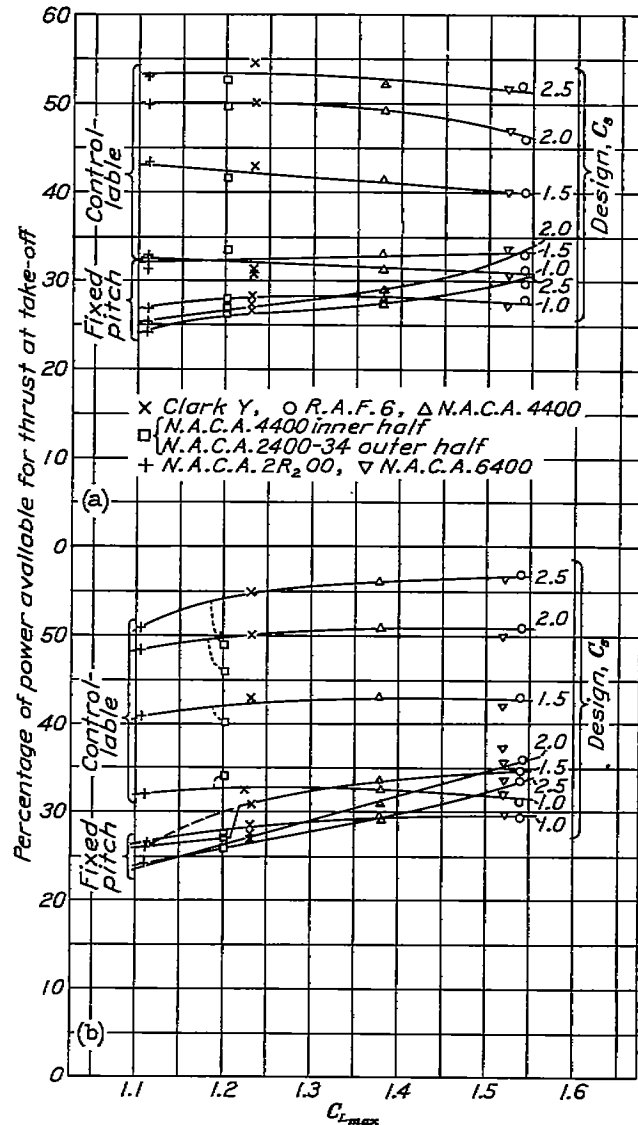 60
50
40
30
20
10
0
50
40
30
20
10
0
Percentage of power available for thrust at take-off
Control-
lable
Fixed
pitch
2.5
2.0
1.5
2.0
1.5
1.0
2.5
1.0
Design, Cs
× Clark Y, ○ R.A.F.6, △ N.A.C.A.4400
□ { N.A.C.A.4400 inner half
N.A.C.A.2400-34 outer half
+ N.A.C.A.2R₂00, ▽ N.A.C.A.6400
(a)
Control-
lable
Fixed
pitch
2.5
2.0
1.5
2.0
1.5
2.5
1.0
1.0
Design, Cs
(b)
1.1 1.2 1.3 1.4 1.5 1.6
CLmax